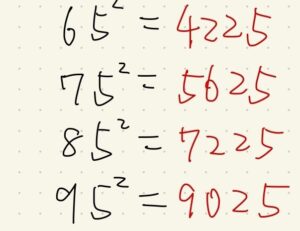 65² = 4225
75² = 5625
85² = 7225
95² = 9025